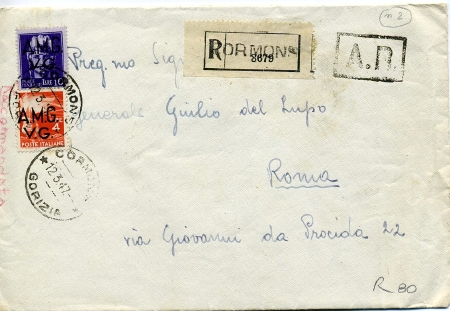 n. 2
A.M.G.
V.G.
LIRE 10
A.M.G.
V.G.
4
POSTE ITALIANE
CORMONS
12.3.47
GORIZIA
R CORMONS
8679
A.R.
Preg.mo Sig.
Generale Giulio del Lupo
Roma
via Giovanni da Procida 22
R 80